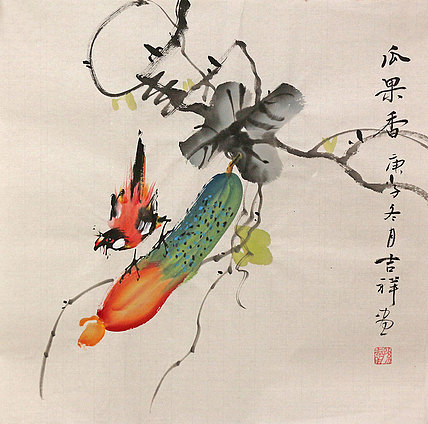 瓜果香
庚子冬月吉祥畫